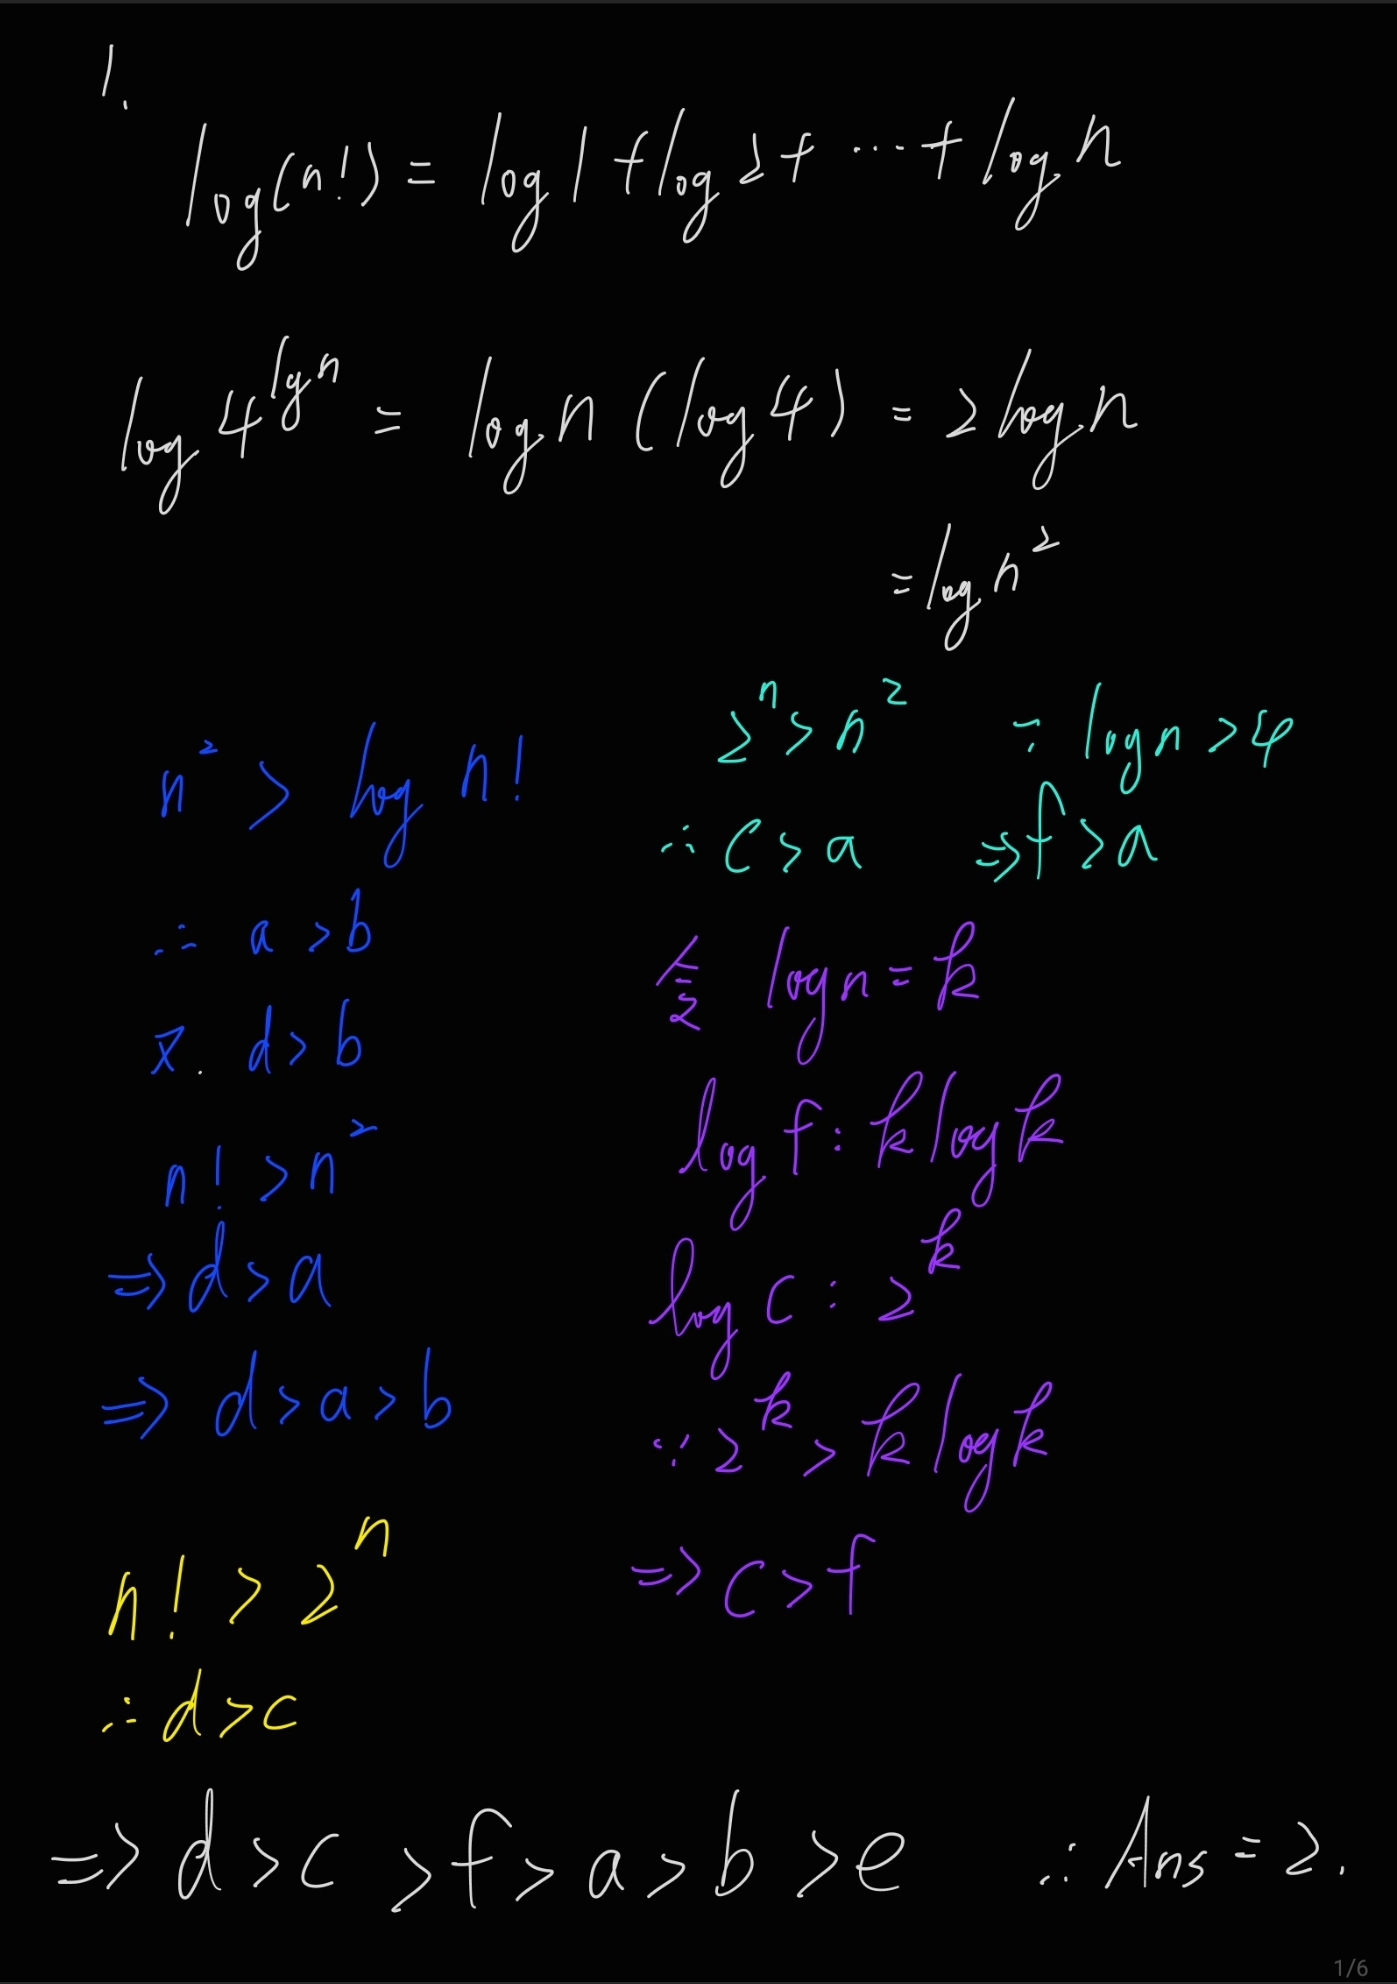 1.
log(n!) = log 1 + log 2 + ⋯ + log n
log 4^{lg n} = log n (log 4) = 2 log n
= log n²
n² > log n!
∴ a > b
又. d > b
n! > n²
⇒ d > a
⇒ d > a > b
n! > 2ⁿ
∴ d > c
2ⁿ > n²
∴ c > a
∵ log n > 4
⇒ f > a
令 log n = k
log f : k log k
log c : 2^k
∵ 2^k > k log k
⇒ c > f
⇒ d > c > f > a > b > e ∴ Ans = 2.
1/6